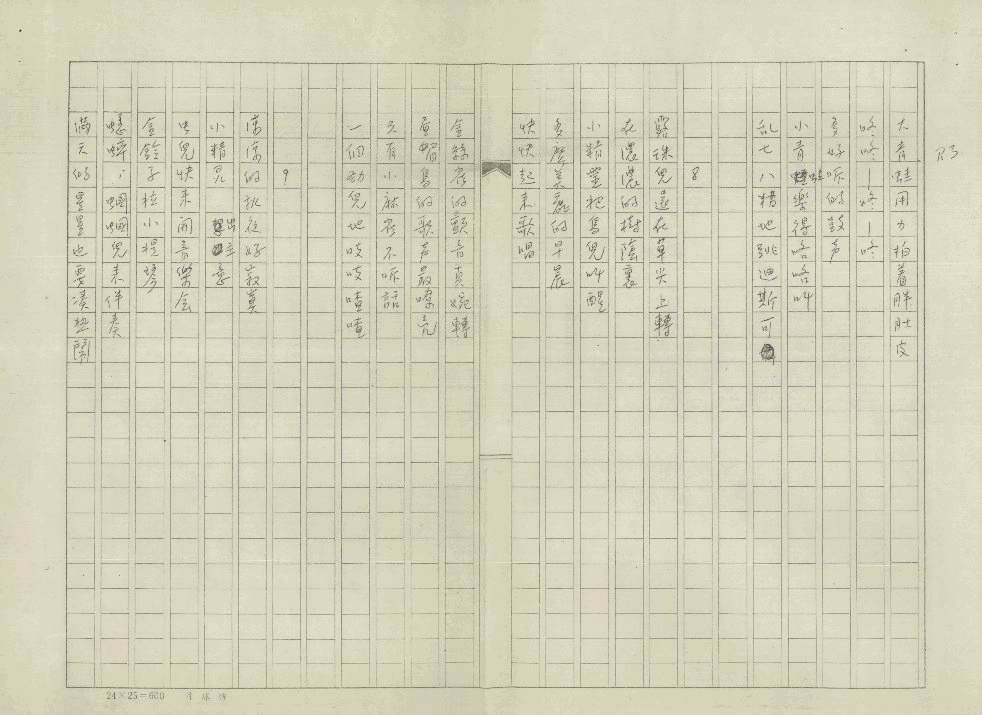 P.3
大青蛙用力拍着胖肚皮
咚咚—咚—咚
多好听的鼓声
小青蛙樂得咯咯叫
乱七八糟地跳迪斯可
8
露珠兒還在草尖上轉
在濃濃的樹蔭裏
小精靈把鳥兒叫醒
多麼美麗的早晨
快快起來歌唱
金絲雀的顫音真婉轉
畫眉鳥的歌声最嘹亮
只有小麻雀不听話
一個劲兒地吱吱喳喳
9
涼涼的秋夜好寂寞
小精灵出主意
虫兒快來開音樂会
金鈴子拉小提琴
蟋蟀、蟈蟈兒來伴奏
滿天的星星也要湊热鬧
24×25=600 月球牌